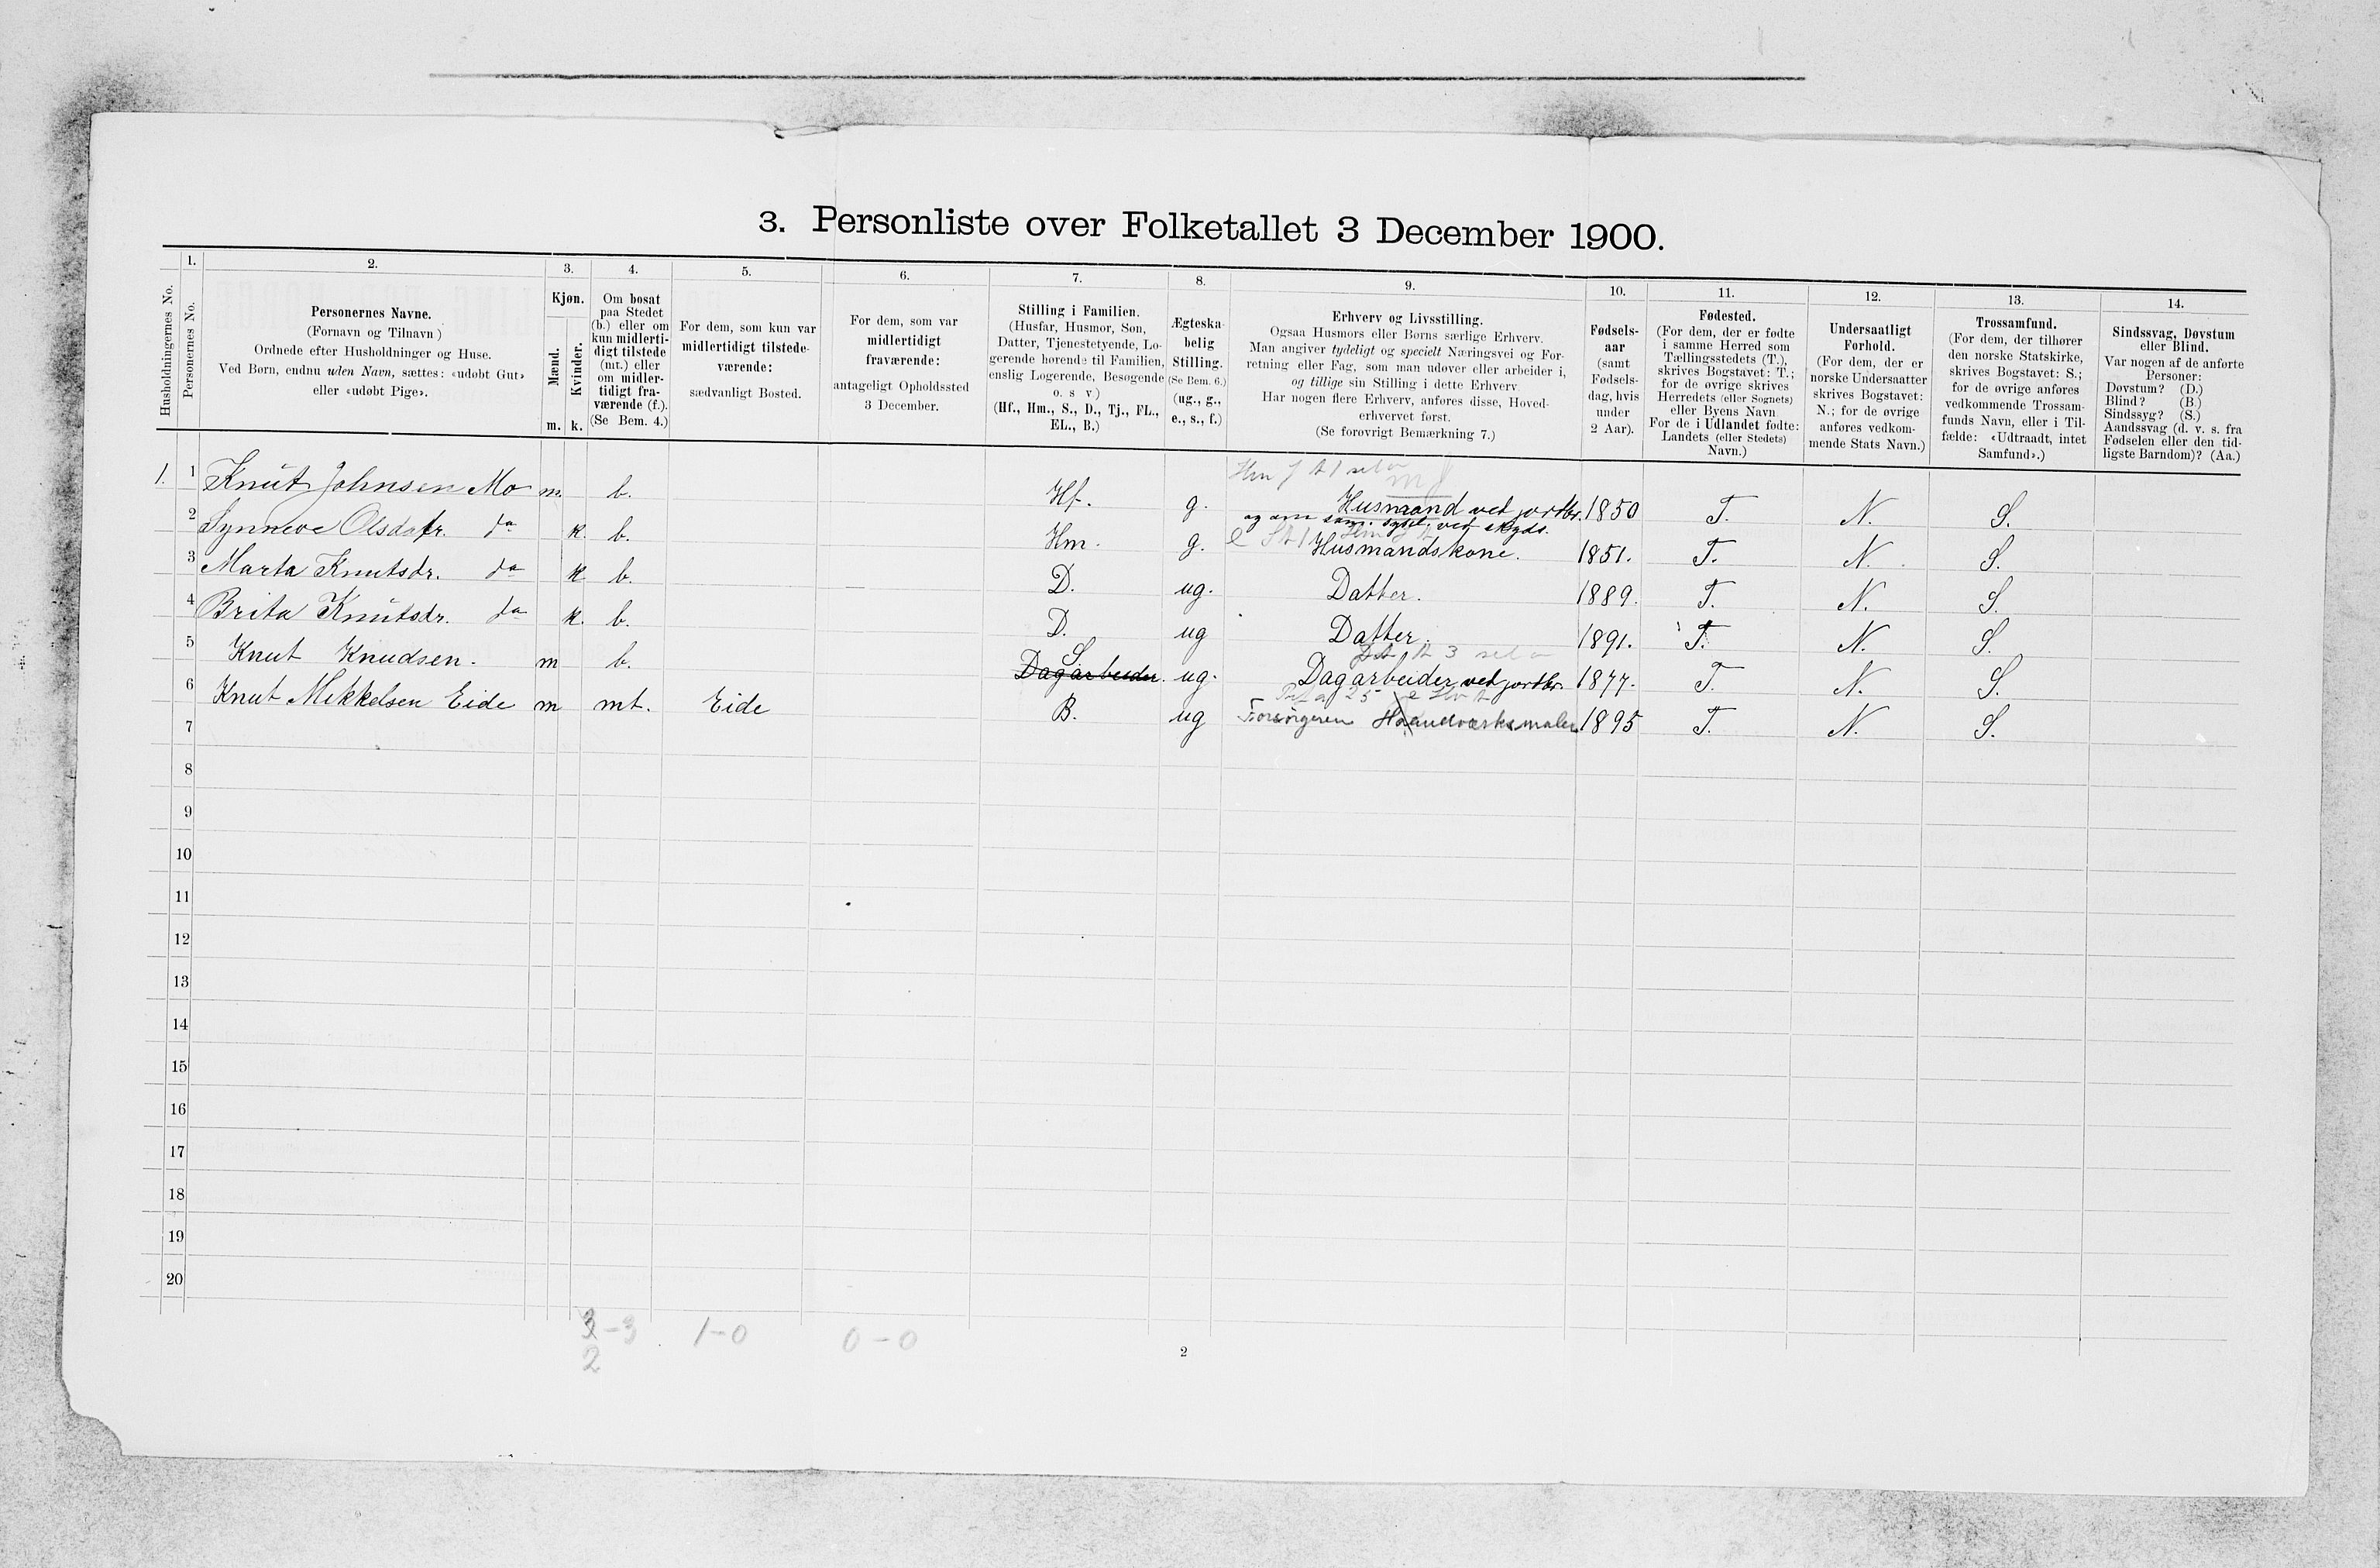 3. Personliste over Folketallet 3 December 1900.
1. 2. 3. 4. 5. 6. 7. 8. 9. 10. 11. 12. 13. 14.
Husholdningernes No.
Personernes No.
Personernes Navne.
(Fornavn og Tilnavn)
Ordnede efter Husholdninger og Huse.
Ved Børn, endnu uden Navn, sættes: «udøbt Gut»
eller «udøbt Pige».
Kjøn.
Mænd.
Kvinder.
m. k.
Om bosat
paa Stedet
(b.) eller om
kun midlerti-
digt tilstede
(mt.) eller
om midler-
tidigt fra-
værende (f.).
(Se Bem. 4.)
For dem, som kun var
midlertidigt tilstede-
værende:
sædvanligt Bosted.
For dem, som var
midlertidigt
fraværende:
antageligt Opholdssted
3 December.
Stilling i Familien.
(Husfar, Husmor, Søn,
Datter, Tjenestetyende, Lo-
gerende hørende til Familien,
enslig Logerende, Besøgende
o. s v)
(Hf., Hm., S., D., Tj., FL.,
EL., B.)
Ægteska-
belig
Stilling.
(Se Bem. 6.)
(ug., g.,
e., s., f.)
Erhverv og Livsstilling.
Ogsaa Husmors eller Børns særlige Erhverv.
Man angiver tydeligt og specielt Næringsvei og For-
retning eller Fag, som man udøver eller arbeider i,
og tillige sin Stilling i dette Erhverv.
Har nogen flere Erhverv, anføres disse, Hoved-
erhvervet først.
(Se forøvrigt Bemærkning 7.)
Fødsels-
aar
(samt
Fødsels-
dag, hvis
under
2 Aar).
Fødested.
(For dem, der er fødte
i samme Herred som
Tællingsstedets (T.),
skrives Bogstavet: T.;
for de øvrige skrives
Herredets (eller Sognets)
eller Byens Navn
For de i Udlandet fødte:
Landets (eller Stedets)
Navn.)
Undersaatligt
Forhold.
(For dem, der er
norske Undersaatter
skrives Bogstavet:
N.; for de øvrige
anføres vedkom-
mende Stats Navn.)
Trossamfund.
(For dem, der tilhører
den norske Statskirke,
skrives Bogstavet: S.;
for de øvrige anføres
vedkommende Trossam-
funds Navn, eller i Til-
fælde: «Udtraadt, intet
Samfund».)
Sindssvag, Døvstum
eller Blind.
Var nogen af de anførte
Personer:
Døvstum? (D.)
Blind? (B.)
Sindssyg? (S.)
Aandssvag (d. v. s. fra
Fødselen eller den tid-
ligste Barndom)? (Aa.)
1. 1 Knut Johnsen Mo m. b. Hf. g. Husmand ved jordbr. 1850 T. N. S.
2 Synneve Olsdatr. do k. b. Hm. g. Husmandskone. 1851. T. N. S.
3 Marta Knutsdr. do k b. D. ug. Datter. 1889. T. N. S.
4 Brita Knutsdr. do k. b. D. ug Datter. 1891. T. N. S.
5 Knut Knudsen. m b. S. Dagarbeider. ug. Dagarbeider ved jordbr. 1877. T. N. S.
6 Knut Mikkelsen Eide m mt. Eide B. ug Forsørgeren Haandværksmaler 1895 T. N. S.
7
8
9
10
11
12
13
14
15
16
17
18
19
20
3-3 1-0 0-0
2
2